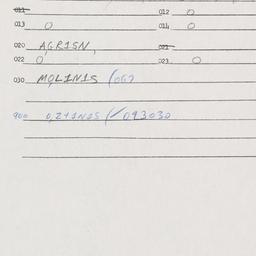 011 012 O
013 O 014 O
020 AGRISN, 021
022 O 023 O
030 MOLINIS (067
900 0,2+INIS (/093030